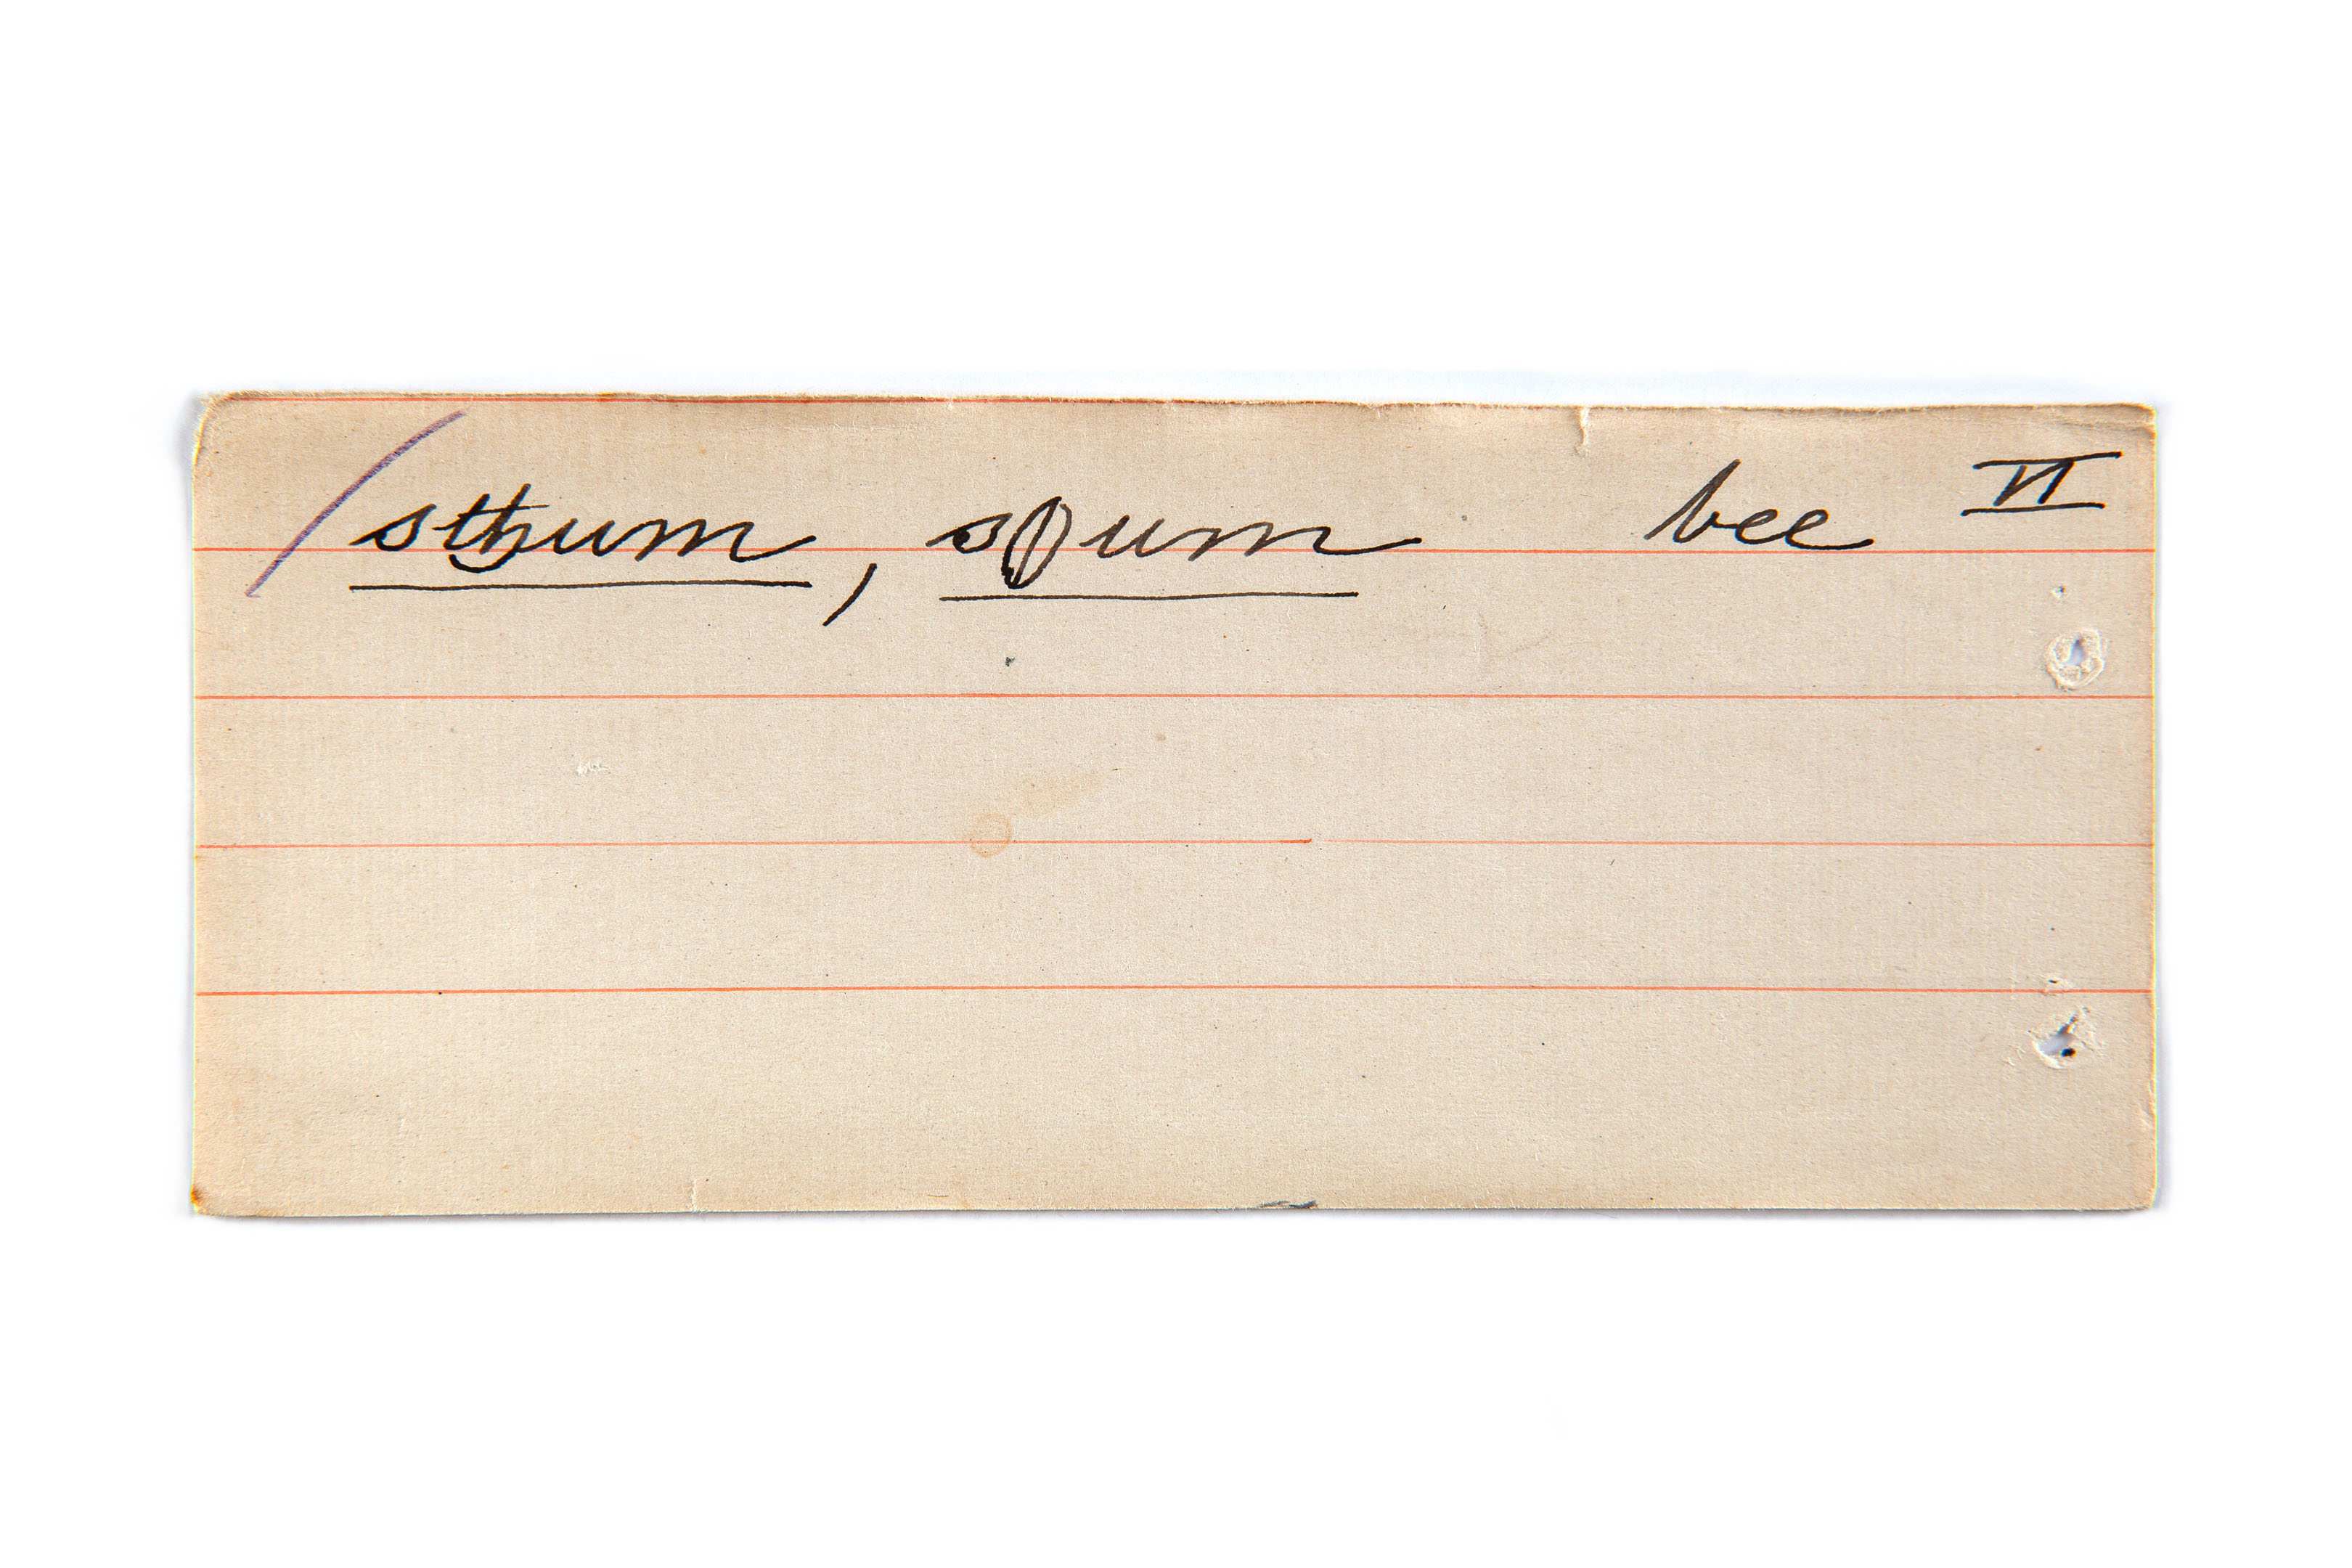 / sthum, sθum bee VI